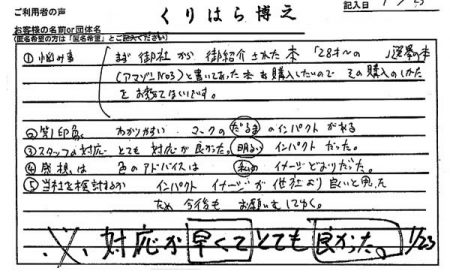 ご利用者の声
くりはら博之
記入日 1/23
お客様の名前or団体名
(匿名希望の方は「匿名希望」とご記入ください)
①悩み事 まず御社から御紹介された本「28才〜の 」選挙の本
(アマゾンNo3)と書いてあった本も購入したいので その購入のしかた
をお教えてほしいです。
②第1印象 わかりやすい マークのだるまのインパクトがある
③スタッフの対応 とても対応が良かった。明るいインパクトだった。
④感想は 色のアドバイスは 私のイメージどおりだった。
⑤当社を検討するか インパクト イメージが他社より良いと思った
ため 今後も お願いをしてゆく。
※、対応が早くてとても良かった。1/23